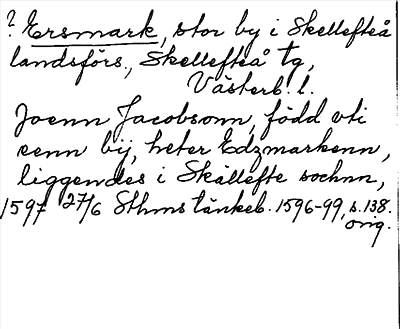 ? Ersmark, stor by i Skellefteå
landsförs., Skellefteå tg,
Västerb. l.
Joenn Jacobsonn, född vti
eenn bij, heter Edzmarkenn,
liggendes i Skällefte sochnn,
1597 27/6 Sthms tänkeb. 1596-99, s. 138.
orig.